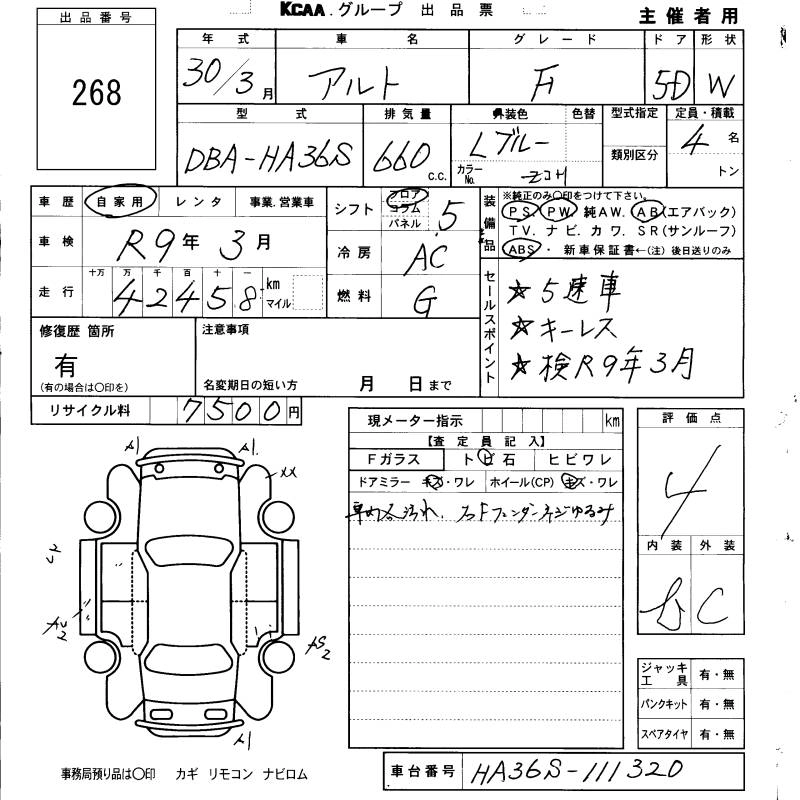 KCAA.グループ 出品票
主催者用
出品番号
268
年式 車名 グレード ドア 形状
30/3月 アルト F 5D W
型式 排気量 外装色 色替 型式指定 定員・積載
DBA-HA36S 660 c.c. Lブルー 類別区分 4名
カラーNo. トン
車歴 自家用 レンタ 事業.営業車
シフト フロア コラム パネル 5
装備品 ※純正のみ○印をつけて下さい。
PS. PW. 純AW. AB(エアバック)
TV. ナビ. カワ. SR(サンルーフ)
ABS・ 新車保証書←(注) 後日送りのみ
車検 R9年 3月
冷房 AC
走行 十万 万 千 百 十 一
42458 km マイル
燃料 G
セールスポイント
☆5速車
☆キーレス
☆検R9年3月
修復歴 箇所
有
(有の場合は○印を)
注意事項
名変期日の短い方 月 日まで
リサイクル料 7500円
現メーター指示 km
【査定員記入】
Fガラス トビ石 ヒビワレ
ドアミラー キズ・ワレ ホイール(CP) キズ・ワレ
評価点
4
内装 外装
C
A1 A1.
XX
A1
ジャッキ工具 有・無
パンクキット 有・無
スペアタイヤ 有・無
事務局預り品は○印 カギ リモコン ナビロム
車台番号 HA36S-111320